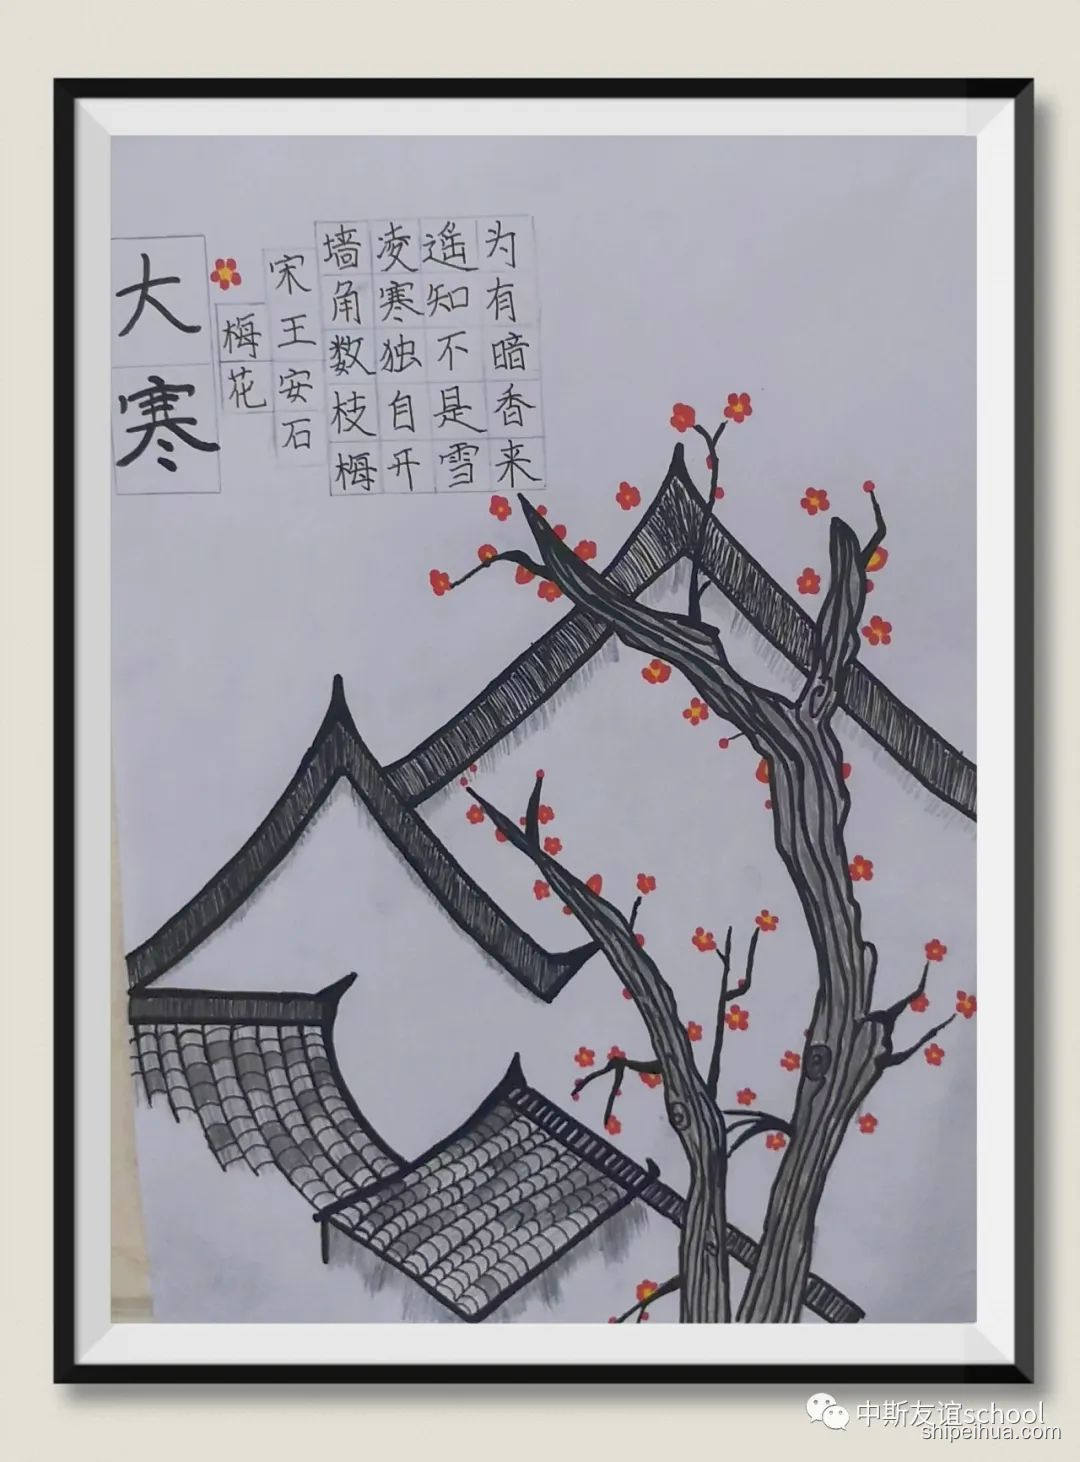 大寒
梅花
宋王安石
墙角数枝梅
凌寒独自开
遥知不是雪
为有暗香来
中斯友谊school
shipeihua.com